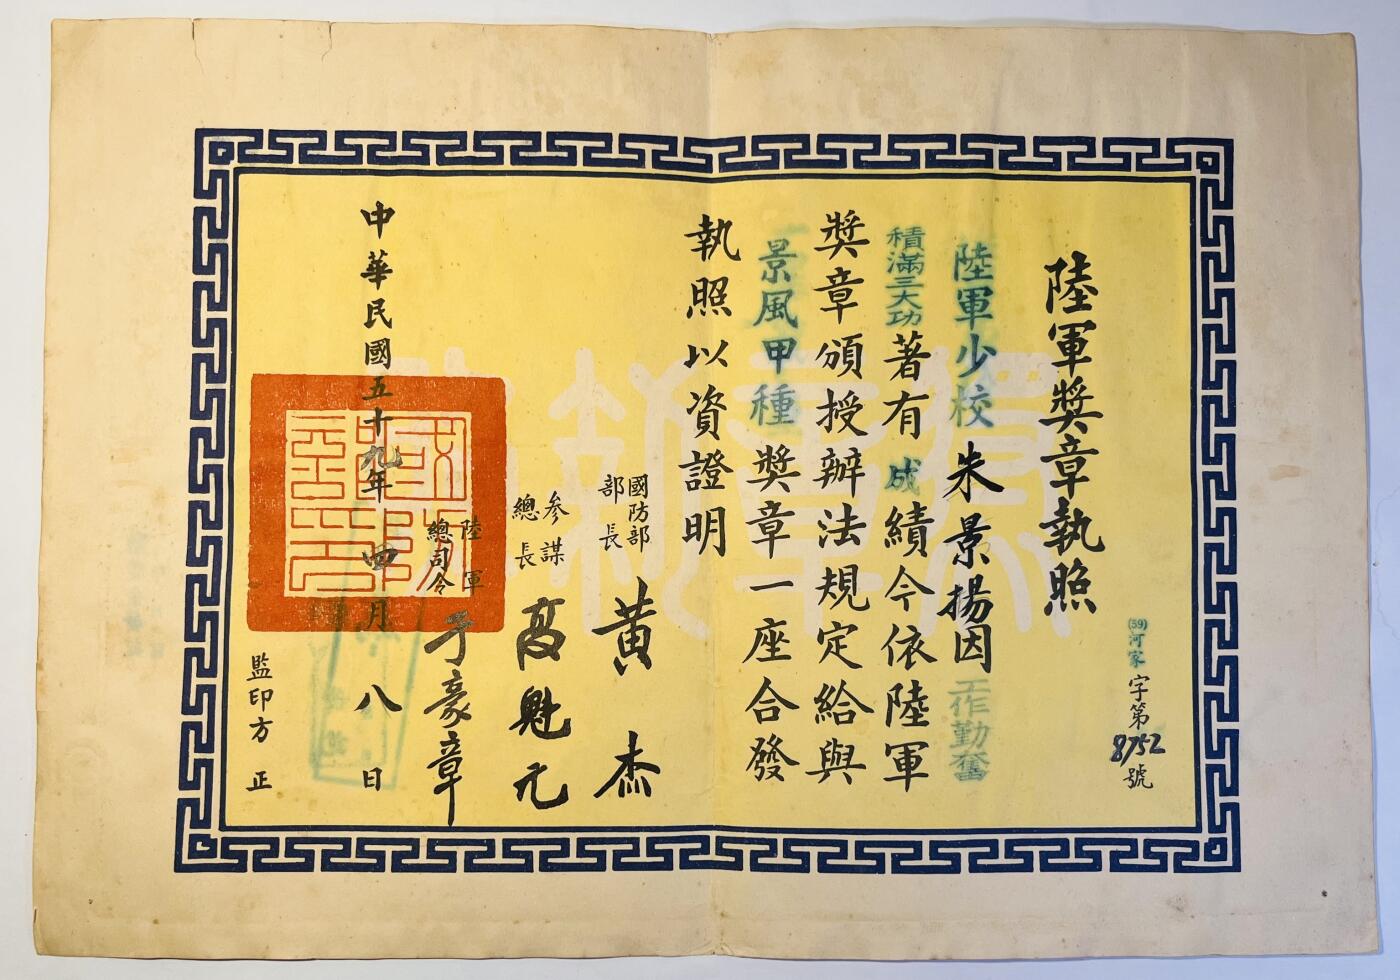 陸軍獎章執照
(59)河家字第8752號
陸軍少校朱景揚因工作勤奮
積滿三大功著有成績今依陸軍
獎章頒授辦法規定給與
景風甲種獎章一座合發
執照以資證明
國防部部長 黃杰
參謀總長 高魁元
陸軍總司令 于豪章
中華民國五十九年四月八日
監印方正